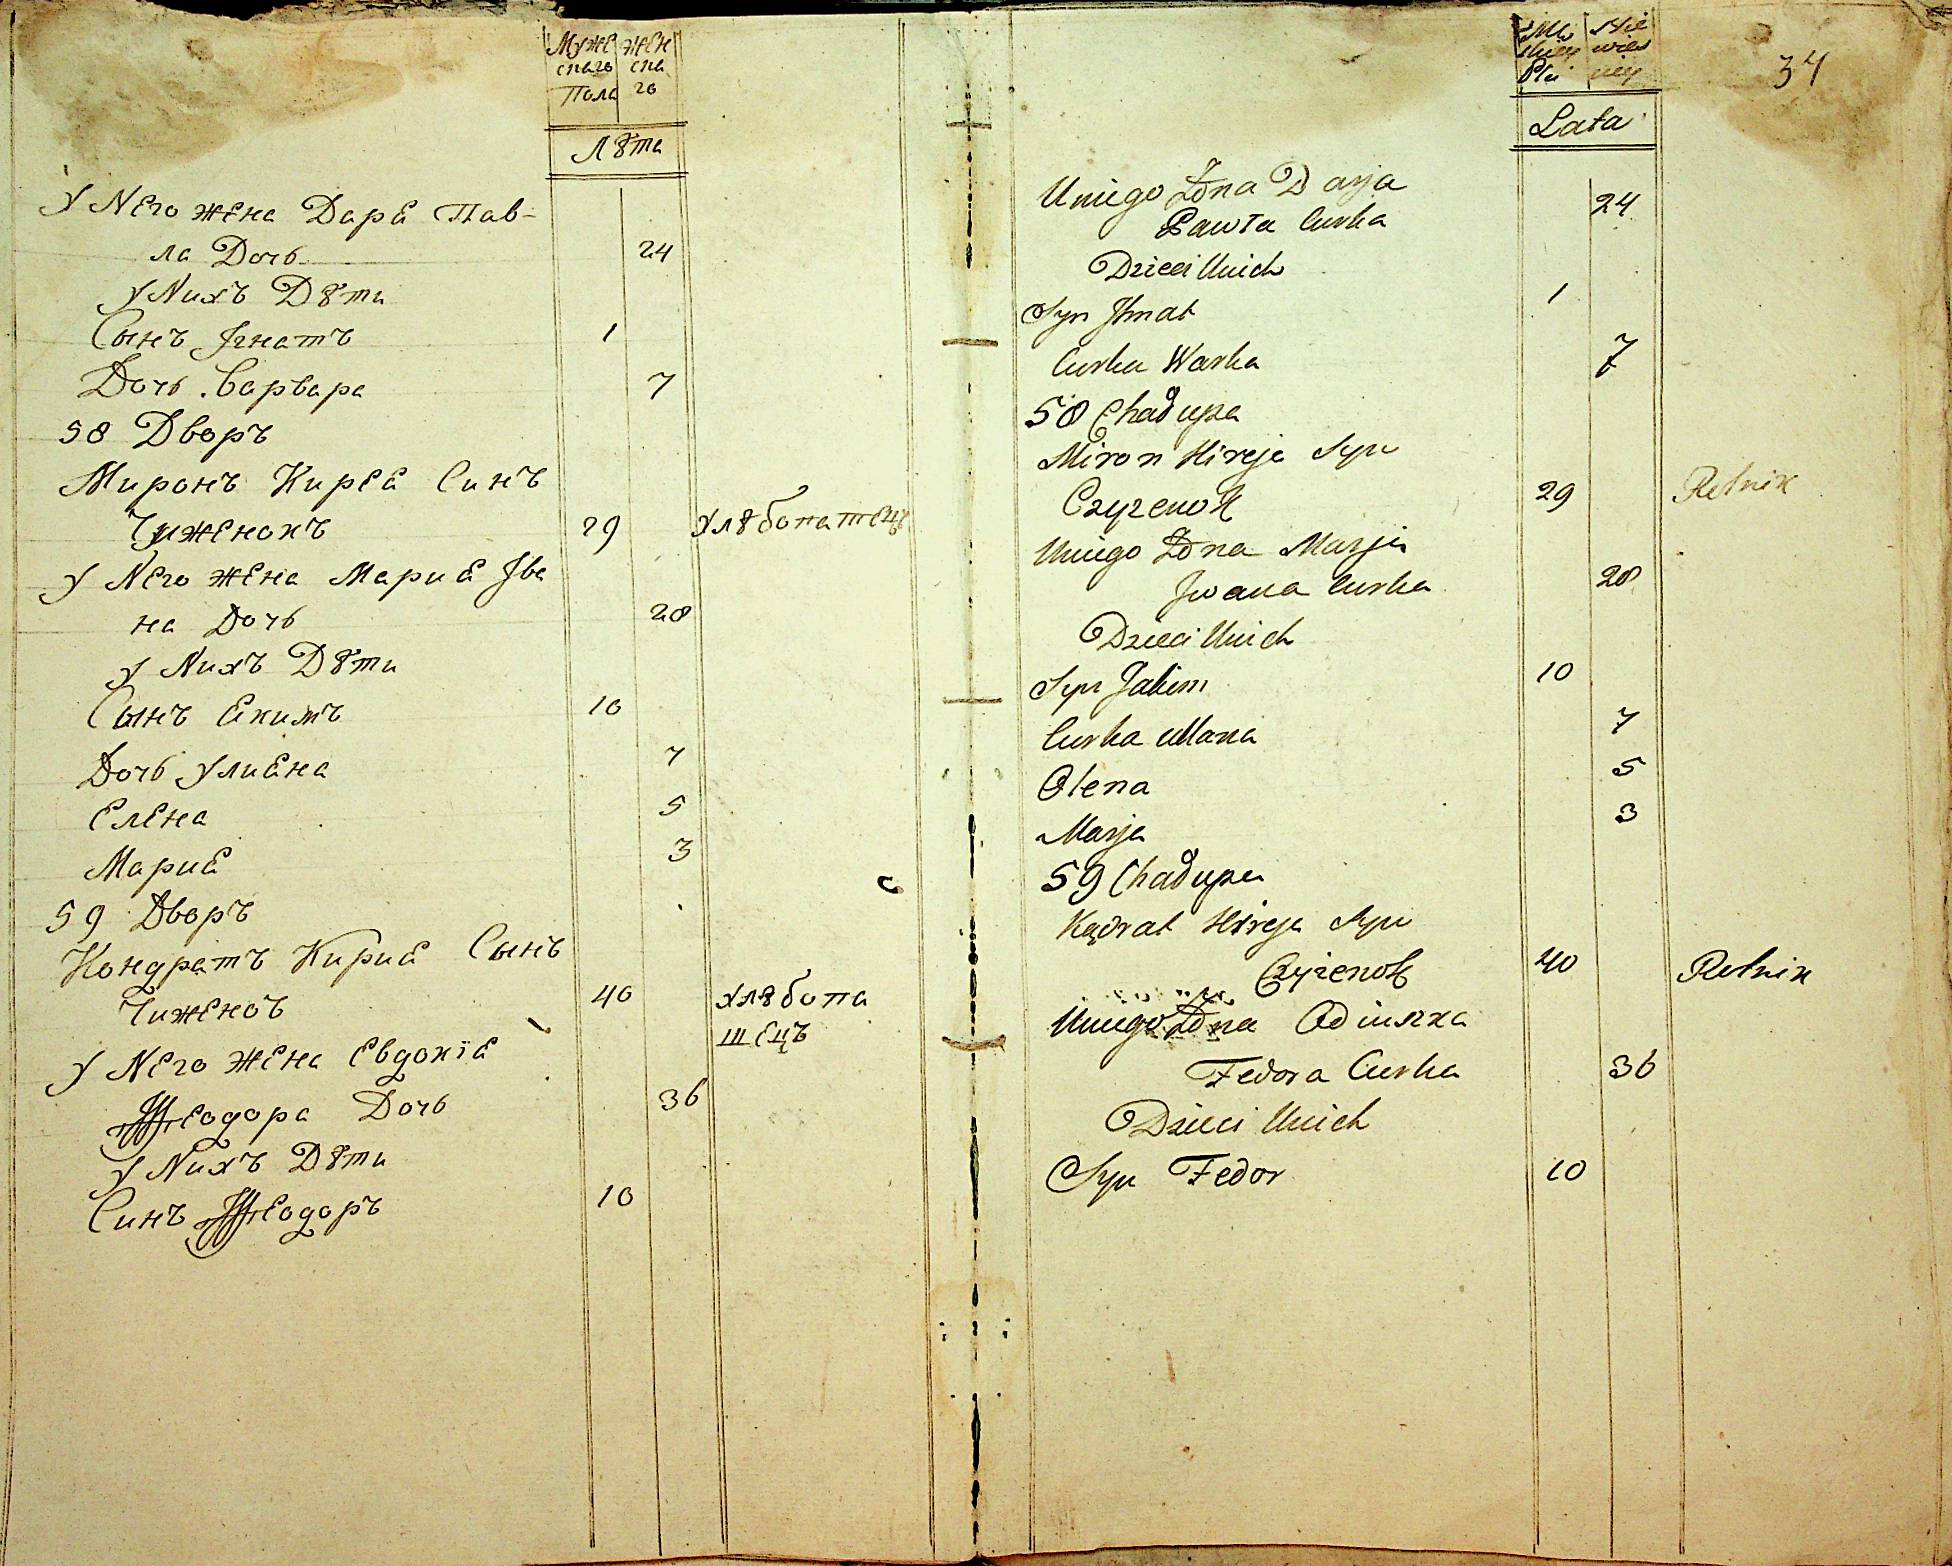 Муже жен
скаго ска
Пола го
Лѣта
У Него жена Даря Пав-
ла Дочь 24
У Нихъ Дѣти
Сынъ Iгнатъ 1
Дочь Варвара 7
58 Дворъ
Миронъ Кирея Синъ
Чиженокъ 29 хлѣбопатецъ
У Него жена Мария Iва
на Дочь 28
У Нихъ Дѣти
Сынъ Якимъ 10
Дочь Улияна 7
Елена 5
Мария 3
59 Дворъ
Кондратъ Кирия Сынъ
Чиженовъ 40 хлѣбопа
шецъ
У Него жена Евдокiя
Ѳеодора Дочь 36
У Нихъ Дѣти
Синъ Ѳеодоръ 10
34
Płci
Lata
Uniego Żona Darja 24
Pawła Curka
Dzieci Unich
Syn Ihnat 1
Curka Warka 7
58 Chałupa
Miron Kireja Syn
Czyżenok 29 Rolnik
Uniego Żona Marja
Jwana Curka 28
Dzieci Unich
Syn Jakim 10
Curka Ulana 7
Olena 5
Marja 3
59 Chałupa
Kądrat Kireja Syn
Czyżenok 40 Rolnik
Uniego Żona
Fedora Curka 36
Dzieci Unich
Syn Fedor 10